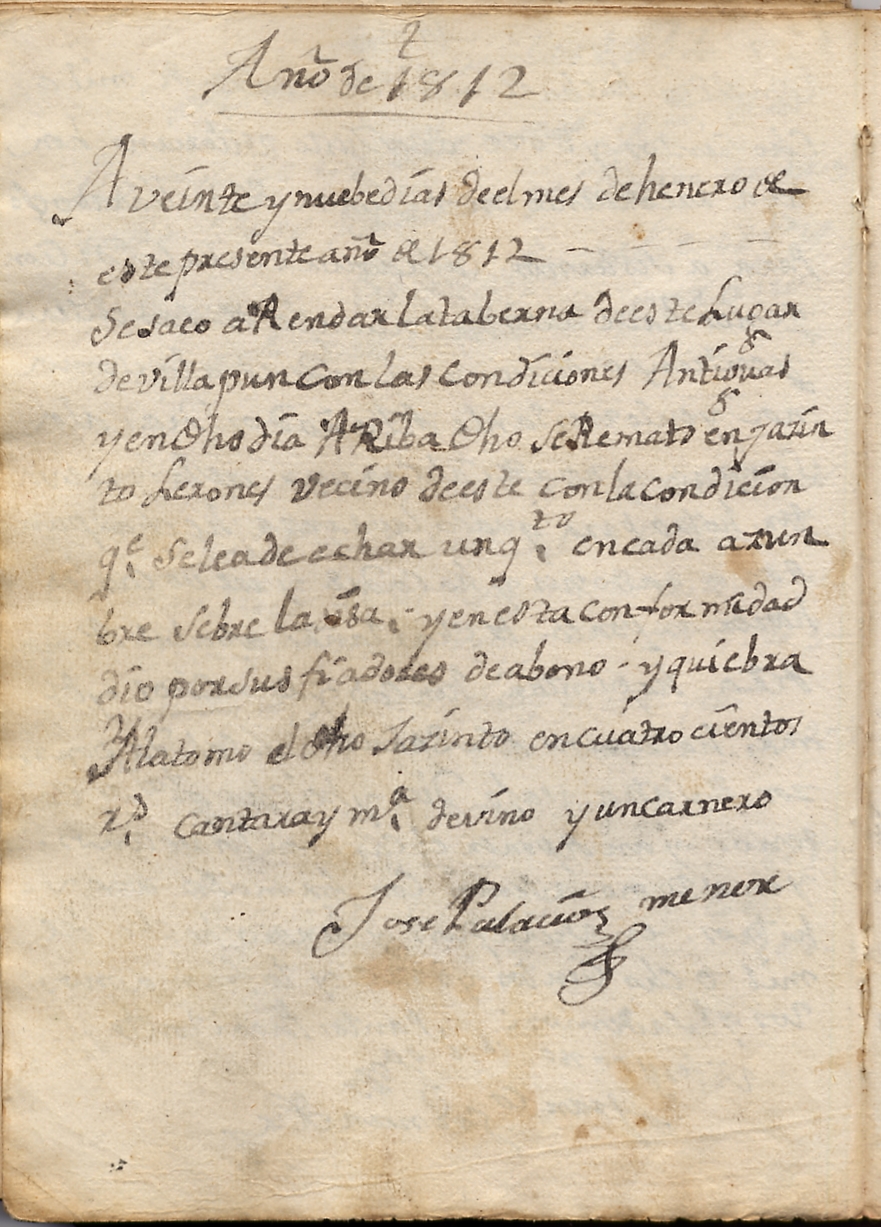 Año de 1812
A veinte y nuebe dias de el mes de henero de
este presente año de 1812
Se saco a Rendar la taberna de este Lugar
de villapun con las condiciones Antiguas
y en dho dia ARiba dho se Remato en jazin
to Lerones vecino de este con la condicion
q.e se le a de echar un q.to en cada azun
bre sobre la sisa y en esta conformidad
dio por sus fiadores de abono y quiebra
Y la tomo el dho Jazinto en cuatro cientos
r.s cantara y m.a de vino y un carnero
Jose Palacios menor